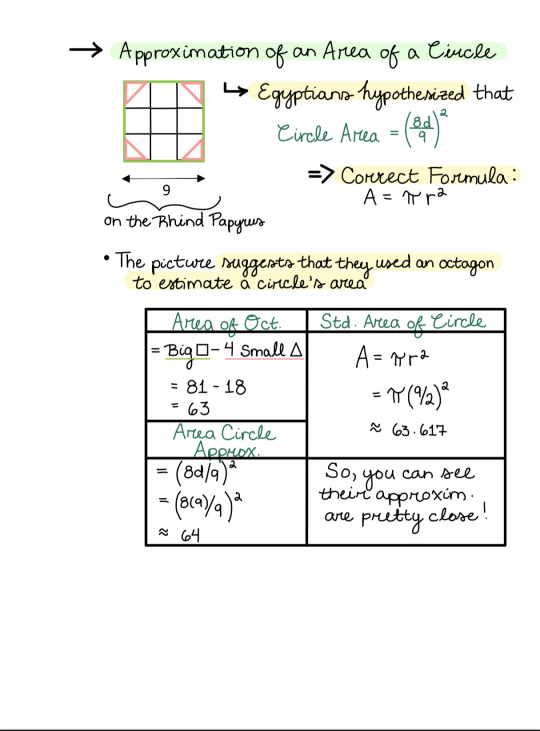 → Approximation of an Area of a Circle
↳ Egyptians hypothesized that
Circle Area = (8d/9)²
=> Correct Formula:
A = πr²
9
on the Rhind Papyrus
• The picture suggests that they used an octagon
to estimate a circle's area
Area of Oct.
= Big □ - 4 Small △
= 81 - 18
= 63
Std. Area of Circle
A = πr²
= π(9/2)²
≈ 63.617
Area Circle
Approx.
= (8d/9)²
= (8(9)/9)²
≈ 64
So, you can see
their approxim.
are pretty close!